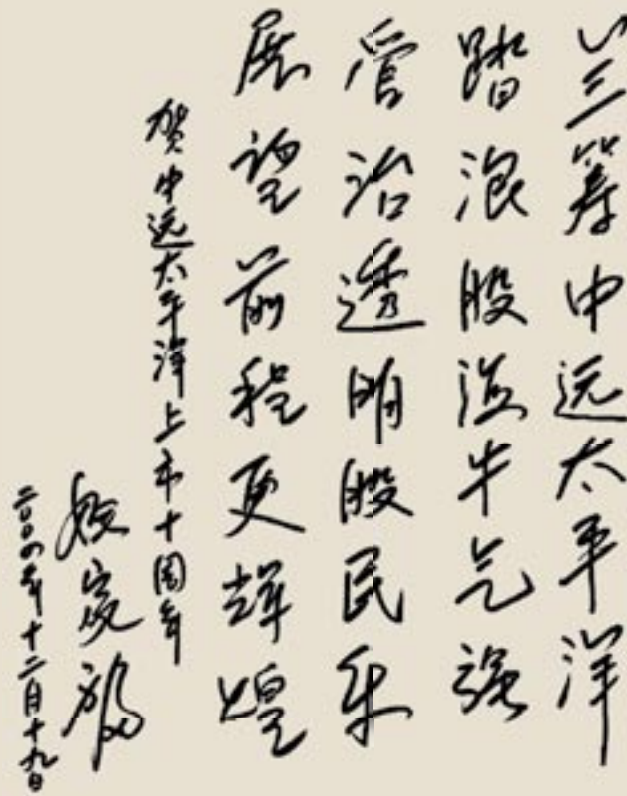 兰筹中远太平洋
踏浪股海牛气强
管治透明股民乐
展望前程更辉煌
贺中远太平洋上市十周年
家福
二〇〇四年十二月十九日